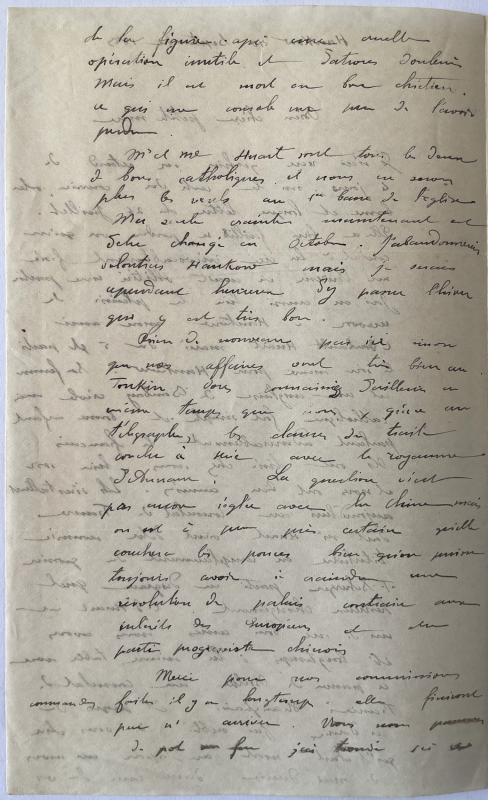 de la figure. après une cruelle
opération inutile et d'atroces douleurs
Mais il est mort en bon chrétien.
ce qui me console un peu de l'avoir
perdu.
Mr et me Huart sont tous les deux
de bons catholiques et nous ne serons
plus les seuls au 1er banc de l'église
Ma seule crainte maintenant est
d'être changé en Octobre. J'abandonnerais
volontiers Hankow mais je serais
cependant heureux d'y passer l'hiver
qui y est très bon.
Rien de nouveau par ici sinon
que nos affaires vont très bien au
Tonkin. Vous connaissez d'ailleurs en
même temps que nous, grâce au
télégraphe, les clauses du traité
conclu à Hué avec le royaume
d'Annam. La question n'est
pas encore réglée avec la Chine mais
on est à peu près certain qu'elle
couchera les pouces bien qu'on puisse
toujours avoir à craindre une
révolution de palais contraire aux
intérêts des Européens et du
parti progressiste chinois
Merci pour nos commissions
commandes faites il y a longtemps. elles finiront
par n' arriver Vous nous
de pot feu j'ai trouvé ici